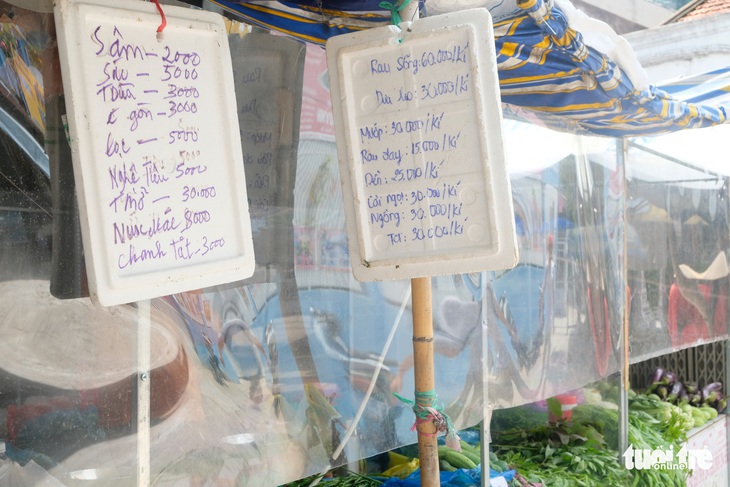 Sâm - 2000
Sâu - 5000
Dừa - 3000
- 3000
lọc - 5000
Nghệ Tiêu 5000
- 30.000
Nước Mắc 8000
chanh tắt - 3000
Rau Sống: 60.000/kí
Dưa leo: 30.000/kí
Mướp: 30.000/kí
Rau day: 15.000/kí
Dền: 25.000/kí
Cải ngọt: 30.000/kí
Ngồng: 30.000/kí
30.000/kí
tuổi trẻ
online